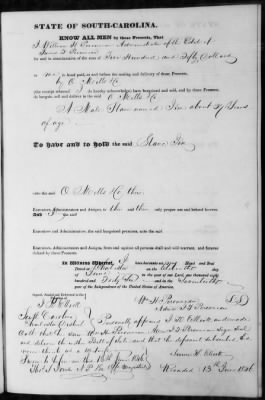 STATE OF SOUTH-CAROLINA.
KNOW ALL MEN by these Presents, That
I William H Peronneau Administrator of the Estate of
James F Peronneau
for and in consideration of the sum of Four Hundred and Fifty Dollars
to me in hand paid, at and before the sealing and delivery of these Presents,
by O Mills &Co
(the receipt whereof I do hereby acknowledge) have bargained and sold, and by these Presents,
do bargain, sell and deliver to the said O Mills &Co
A Male Slave named Jim about 27 Years
of age
To have and to hold the said Slave Jim
unto the said O Mills &Co their
Executors, Administrators and Assigns, to their and their only proper use and behoof forever.
And I the said
Executors, Administrators and Assigns, the said bargained premises, unto the said
Executors, Administrators and Assigns, from and against all persons shall and will warrant, and forever
defend by these Presents.
In Witness Whereof, I have hereunto set my Hand and Seal
Dated at Charleston on the
day of June in the year of our Lord, one thousand eight
hundred and forty Six and in the Seventieth
year of the Independence of the United States of America.
Signed, Sealed and Delivered in the
W H Peronneau
Admor J F Peronneau
South Carolina
Charleston District Personally appeared
Oath that he saw Wm H Peronneau Admor J F Peronneau sign Seal
and deliver the within Bill of Sale and that
Sworn to before me this 13th June 1846
Recorded 13th June 1846